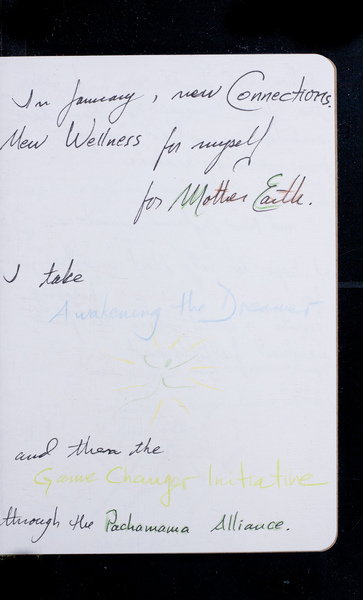 In January, new Connections.
New Wellness for myself
for Mother Earth.
I take
Awakening the Dreamer
and then the
Game Changer Initiative
through the Pachamama Alliance.